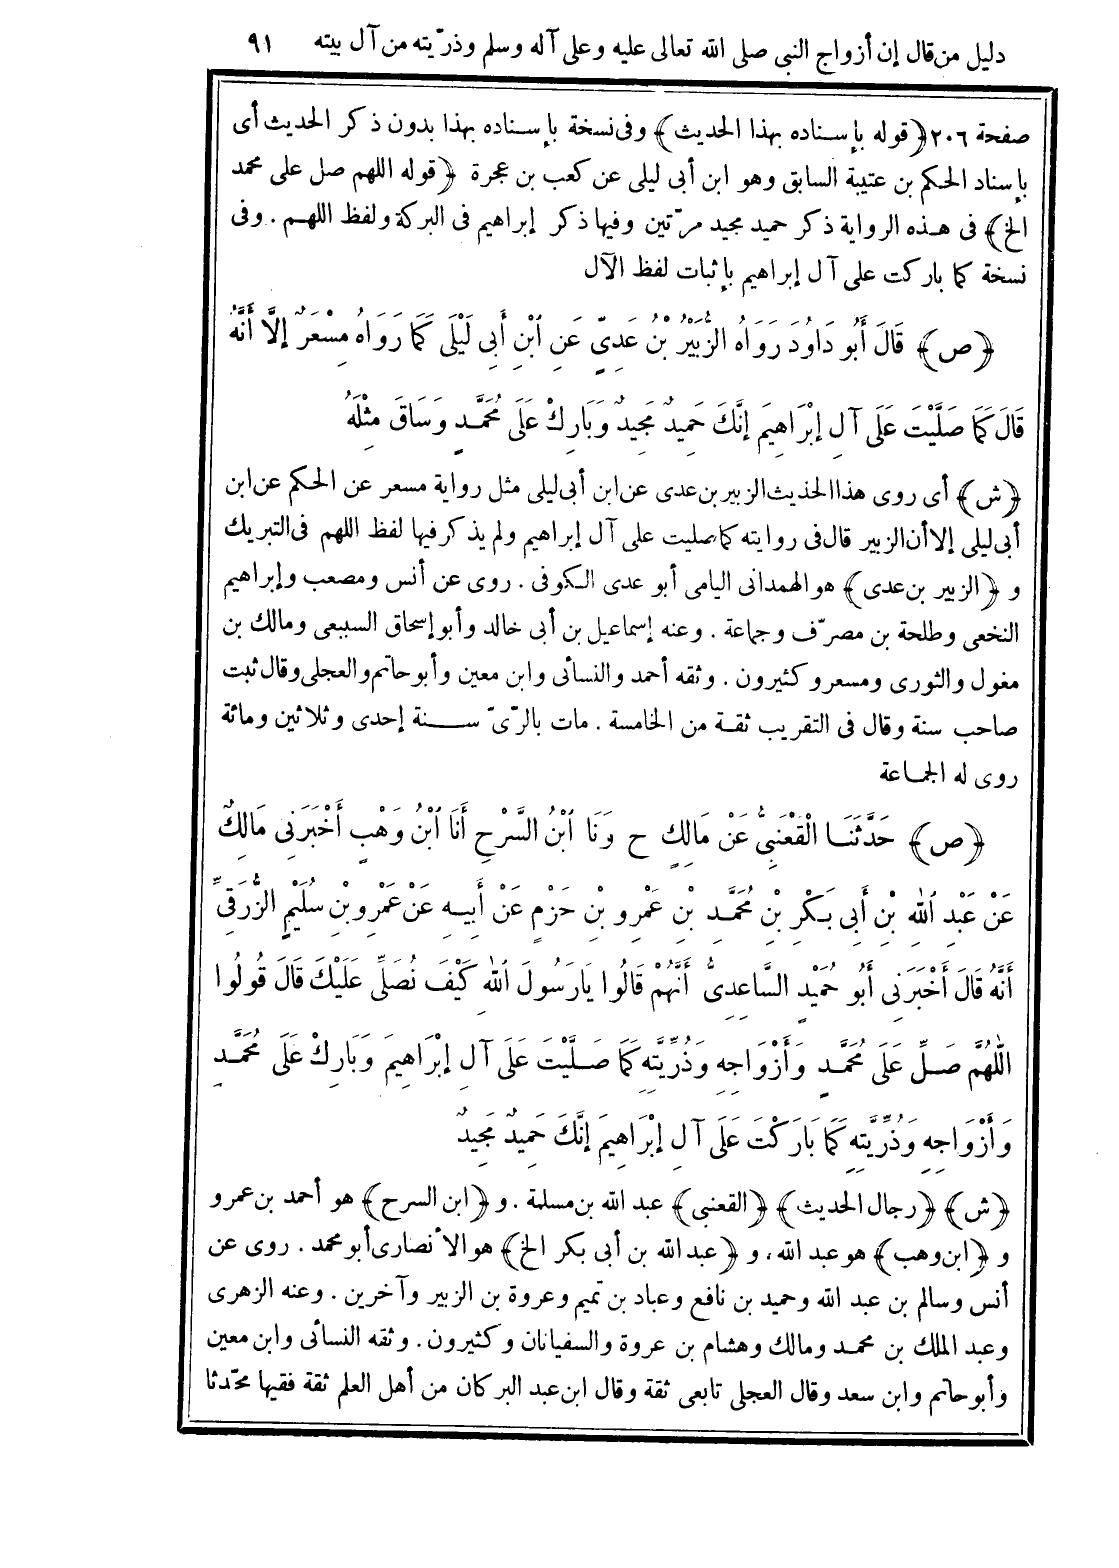 دليل من قال إن أزواج النبي صلى الله تعالى عليه وعلى آله وسلم وذرّيته من آل بيته ٩١
صفحة ٢٠٦ ﴿قوله بإسناده بهذا الحديث﴾ وفى نسخة بإسناده بهذا بدون ذكر الحديث أى
بإسناد الحكم بن عتيبة السابق وهو ابن أبى ليلى عن كعب بن عجرة ﴿قوله اللهم صل على محمد
الخ﴾ فى هذه الرواية ذكر حميد مجيد مرّتين وفيها ذكر إبراهيم فى البركة ولفظ اللهم . وفى
نسخة كما باركت على آل إبراهيم بإثبات لفظ الآل
﴿ص﴾ قَالَ أَبُو دَاوُدَ رَوَاهُ الزُّبَيْرُ بْنُ عَدِىٍّ عَنِ ابْنِ أَبِى لَيْلَى كَمَا رَوَاهُ مِسْعَرٌ إِلَّا أَنَّهُ
قَالَ كَمَا صَلَّيْتَ عَلَى آلِ إِبْرَاهِيمَ إِنَّكَ حَمِيدٌ مَجِيدٌ وَبَارِكْ عَلَى مُحَمَّدٍ وَسَاقَ مِثْلَهُ
﴿ش﴾ أى روى هذا الحديث الزبير بن عدى عن ابن أبى ليلى مثل رواية مسعر عن الحكم عن ابن
أبى ليلى إلا أن الزبير قال فى روايته كما صليت على آل إبراهيم ولم يذكر فيها لفظ اللهم فى التبريك
و ﴿الزبير بن عدى﴾ هو الهمدانى اليامى أبو عدى الكوفى . روى عن أنس ومصعب وإبراهيم
النخعى وطلحة بن مصرّف وجماعة . وعنه إسماعيل بن أبى خالد وأبو إسحاق السبيعى ومالك بن
مغول والثورى ومسعر وكثيرون . وثقه أحمد والنسائى وابن معين وأبو حاتم والعجلى وقال ثبت
صاحب سنة وقال فى التقريب ثقة من الخامسة . مات بالرّىّ سنة إحدى وثلاثين ومائة
روى له الجماعة
﴿ص﴾ حَدَّثَنَا الْقَعْنَبِىُّ عَنْ مَالِكٍ ح وَنَا ابْنُ السَّرْحِ أَنَا ابْنُ وَهْبٍ أَخْبَرَنِى مَالِكٌ
عَنْ عَبْدِ اللهِ بْنِ أَبِى بَكْرِ بْنِ مُحَمَّدِ بْنِ عَمْرِو بْنِ حَزْمٍ عَنْ أَبِيهِ عَنْ عَمْرِو بْنِ سُلَيْمٍ الزُّرَقِىِّ
أَنَّهُ قَالَ أَخْبَرَنِى أَبُو حُمَيْدٍ السَّاعِدِىُّ أَنَّهُمْ قَالُوا يَارَسُولَ اللهِ كَيْفَ نُصَلِّى عَلَيْكَ قَالَ قُولُوا
اللّٰهُمَّ صَلِّ عَلَى مُحَمَّدٍ وَأَزْوَاجِهِ وَذُرِّيَّتِهِ كَمَا صَلَّيْتَ عَلَى آلِ إِبْرَاهِيمَ وَبَارِكْ عَلَى مُحَمَّدٍ
وَأَزْوَاجِهِ وَذُرِّيَّتِهِ كَمَا بَارَكْتَ عَلَى آلِ إِبْرَاهِيمَ إِنَّكَ حَمِيدٌ مَجِيدٌ
﴿ش﴾ ﴿رجال الحديث﴾ ﴿القعنبى﴾ عبد الله بن مسلمة . و ﴿ابن السرح﴾ هو أحمد بن عمرو
و ﴿ابن وهب﴾ هو عبد الله، و ﴿عبد الله بن أبى بكر الخ﴾ هو الأنصارى أبو محمد . روى عن
أنس وسالم بن عبد الله وحميد بن نافع وعباد بن تميم وعروة بن الزبير وآخرين . وعنه الزهرى
وعبد الملك بن محمد ومالك وهشام بن عروة والسفيانان وكثيرون . وثقه النسائى وابن معين
وأبو حاتم وابن سعد وقال العجلى تابعى ثقة وقال ابن عبد البر كان من أهل العلم ثقة فقيها محدّثا